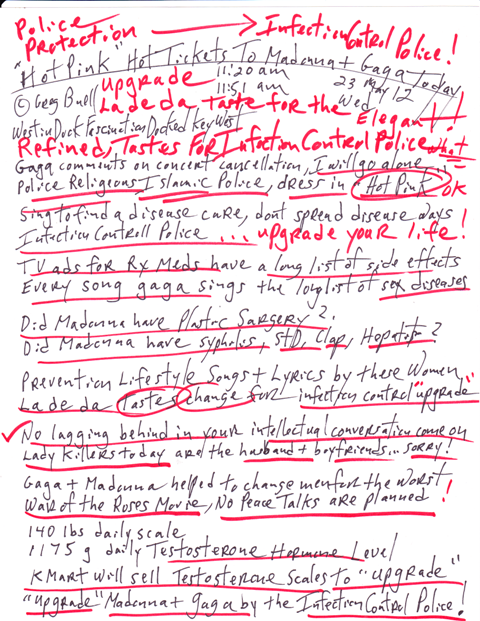 Police Protection → Infection Control Police!
"Hot Pink" Hot Tickets To Madonna + Gaga today
Upgrade 11:20 am 23 May 12
© Greg Buell 11:51 am Wed
La de da taste for the Elegant!
Westin Dock Fascination Docked Key West
Refined, Tastes For Infection Control Police what
Gaga comments on concert cancellation, I will go alone...
Police Religious, Islamic Police, dress in "Hot Pink" OK
Sing to find a disease cure, dont spread disease ways
Infection Controll Police ... upgrade your life!
TV ads for Rx Meds have a long list of side effects
Every song gaga sings the long list of sex diseases
Did Madonna have Plastic Sargery?
Did Madonna have sypholis, STD, Clap, Hepatotis?
Prevention Lifestyle Songs + Lyrics by these Women
La de da Tastes change for infection control "upgrade"
No lagging behind in your intellectual conversation come on
Lady Killers today are the husband + boyfriends... sorry!
Gaga + Madonna helped to change men for the worst
War of the Roses Movie, No Peace Talks are planned!
140 lbs daily scale
1175 g daily Testosterone Hormone Level
KMart will sell Testosterone Scales to "upgrade"
"upgrade" Madonna + Gaga by the Infection Control Police!